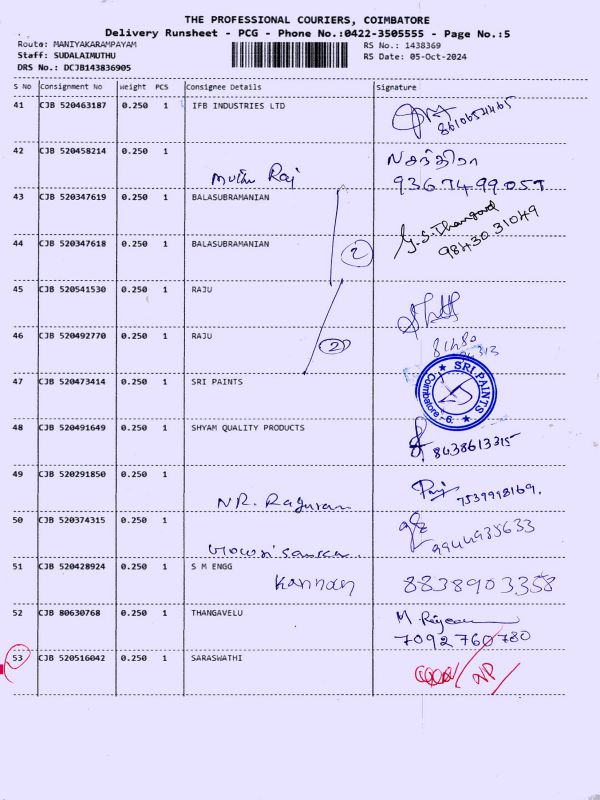 THE PROFESSIONAL COURIERS, COIMBATORE
Delivery Runsheet - PCG - Phone No.:0422-3505555 - Page No.:5
Route: MANIYAKARAMPAYAM
Staff: SUDALAIMUTHU
DRS No.: DCJB143836905
RS No.: 1438369
RS Date: 05-Oct-2024
S No Consignment No Weight PCS Consignee Details Signature
41 CJB 520463187 0.250 1 IFB INDUSTRIES LTD
42 CJB 520458214 0.250 1 Muthu Raj
43 CJB 520347619 0.250 1 BALASUBRAMANIAN
G.S. Thangavel 98430 31049
44 CJB 520347618 0.250 1 BALASUBRAMANIAN
2
45 CJB 520541530 0.250 1 RAJU
46 CJB 520492770 0.250 1 RAJU
2
47 CJB 520473414 0.250 1 SRI PAINTS
SRI PAINTS Coimbatore - 6.
48 CJB 520491649 0.250 1 SHYAM QUALITY PRODUCTS
8438613315
49 CJB 520291850 0.250 1 NR. Raguram
7539998169.
50 CJB 520374315 0.250 1
9944935633
51 CJB 520428924 0.250 1 S M ENGG
Kannan 8838903358
52 CJB 80630768 0.250 1 THANGAVELU
7092760780
53 CJB 520516042 0.250 1 SARASWATHI
NP